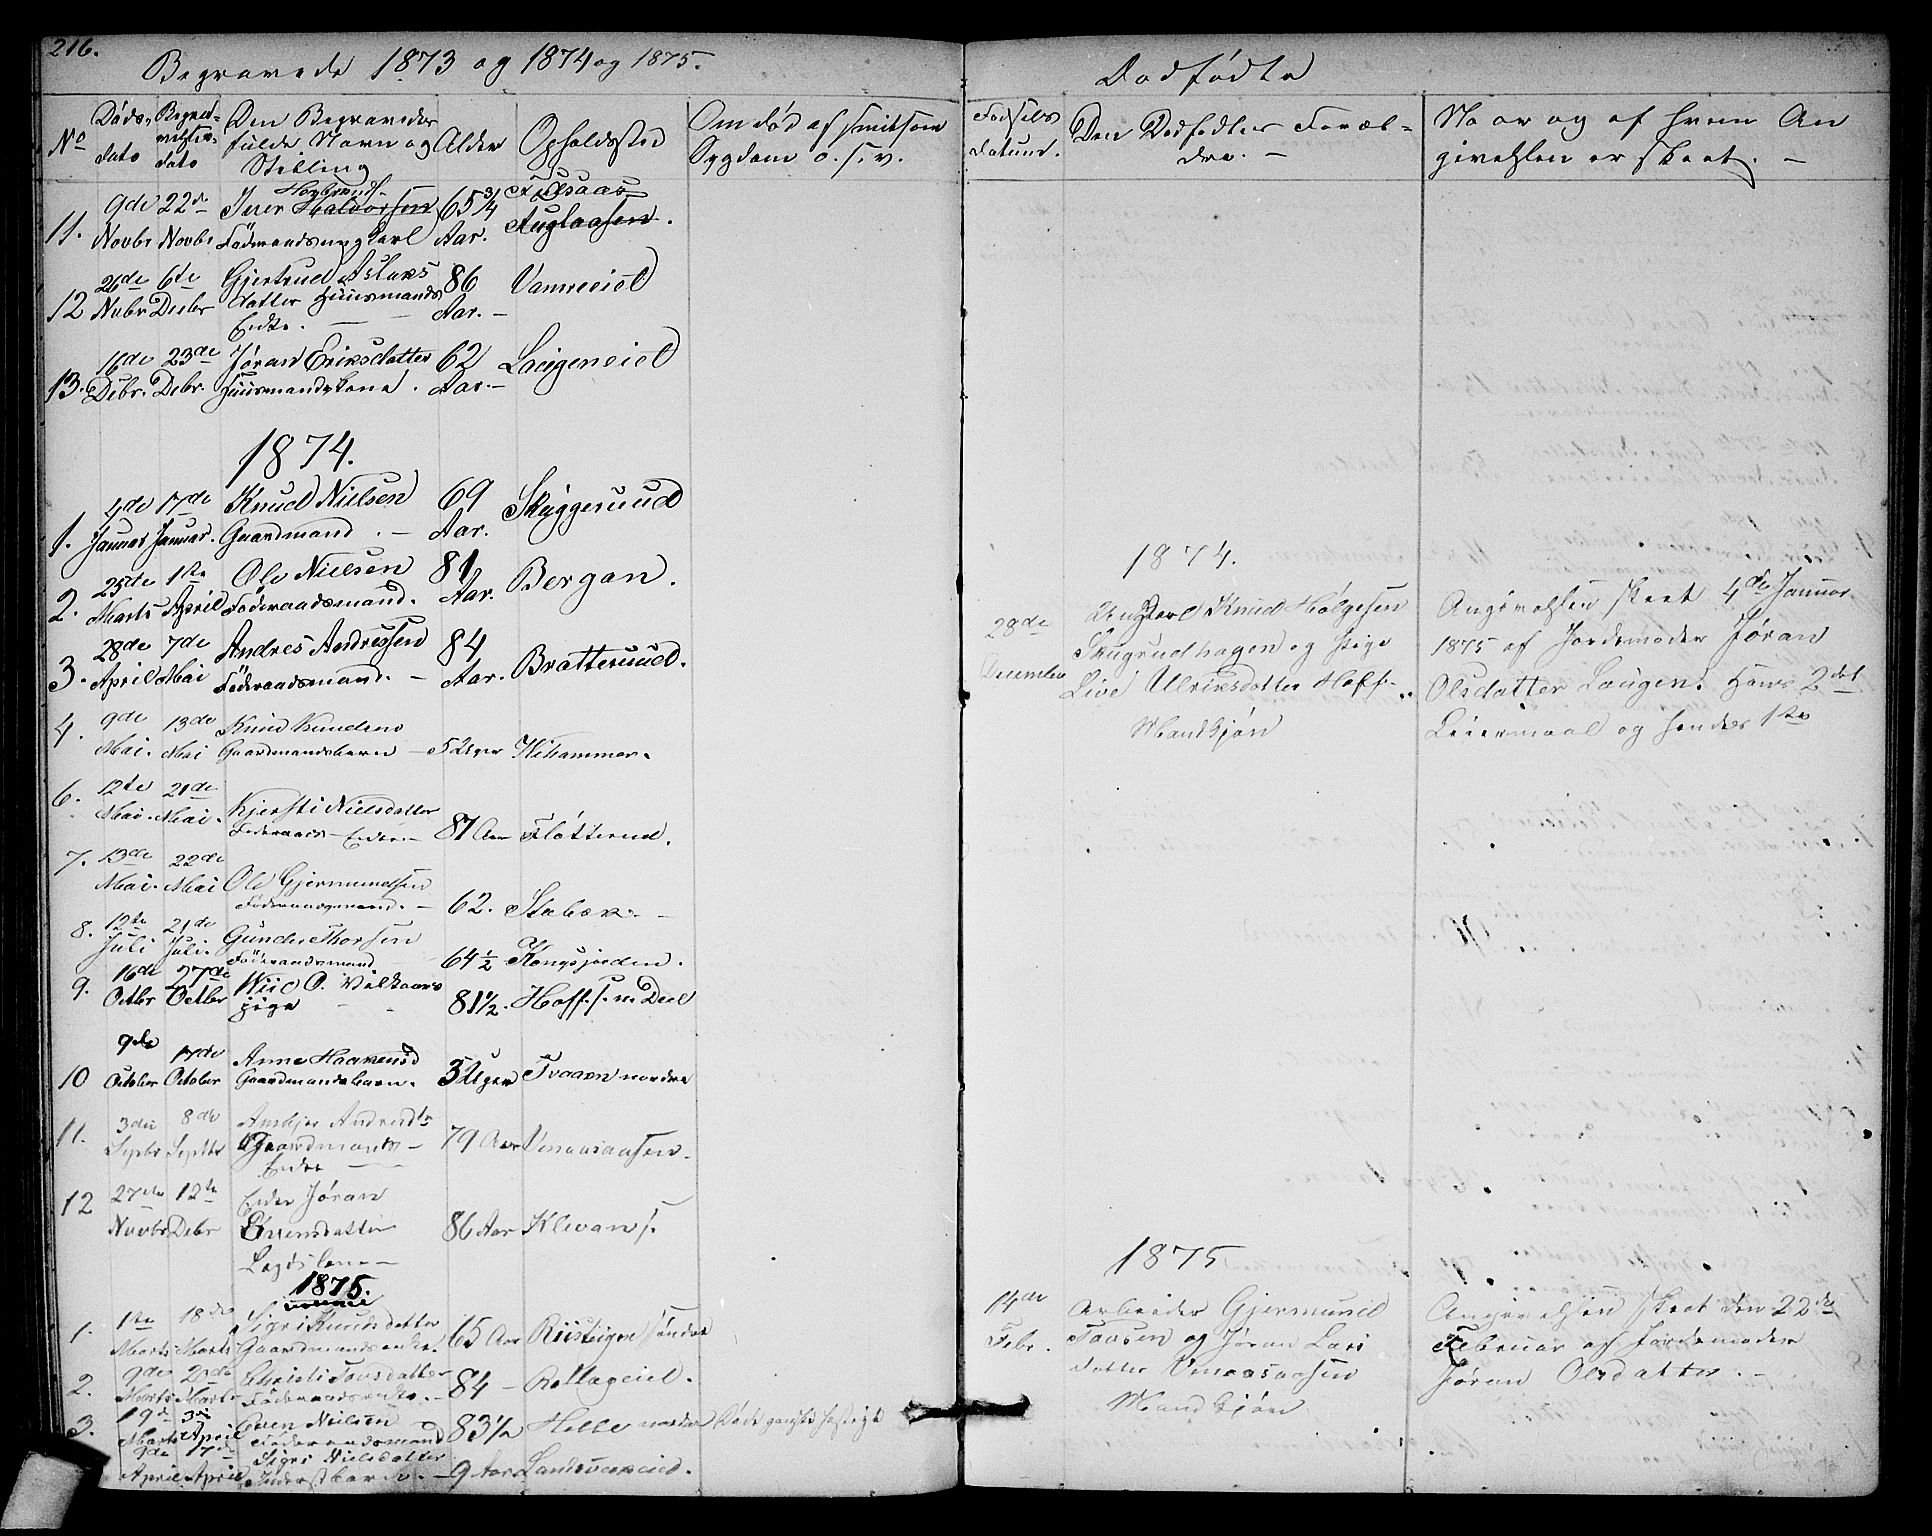 216.
Begravede 1873 og 1874 og 1875.
No
Døds-
dato
Begra-
velses-
dato
Den Begravedes
fulde Navn og
Stilling
Alder
Opholdssted
Om død af smitsom
Sygdom o. s. v.
11.
9de Novbr
22de Novbr
Iver Halvorsen
Föderaadsungkarl
65 3/4
Aar.
12
26de Nvbr
6te Decbr
Gjertrud Aslaks
datter Huusmands
Enke.
86
Aar.
Vanneeiet
13.
16de Debr.
23de Debr.
Jøran Eriksdatter
Huusmandskone.
62
Aar.
Laugeneiet
1874.
1.
4de Januar
17de Januar.
Knud Nielsen
Gaardmand.
69
Aar.
Skuggeruud
2.
25de Marts
1te April
Ole Nielsen
Föderaadsmand.
81
Aar.
Bergan.
3.
28de April
7de Mai
Andres Andressen
Föderaadsmand.
84
Aar.
Bratteruud.
4.
9de Mai.
13de Mai
Knud Knudsens
Gaardmandsbarn
5 Uger
6.
12te Mai.
21de Mai.
Kjersti Nielsdatter
Føderaads-Enke
87 Aar
Fløtterud.
7.
13de Mai.
22de Mai
Ole Gjermundsen
Föderaadsmand.
62.
Stabæk.
8.
12te Juli
21de Juli.
Gunder Thorsen
Föderaadsmand
64 1/2
Kongsjorden.
9.
16de Octbr
27de Octbr
pige
81 1/2.
10
9de October
17de Octobr
Anne Haakensd
Gaardmandsbarn.
3 Uger
Tvaarn nordre
11.
3die Septbr
8de Septbr
Ansbjør Andersdtr
Gaardmands
Enke
79 Aar
Vinaasaasen.
12
27de Novbr
12te Debr
Enke Jøran
Evensdatter
Lægdslem
86 Aar
Klevan s.
1875.
1.
1te Marts
18de Marts
Sigri Knudsdatter
Gaardmandsenke.
65 Aar
Riisteigen søndre
2.
9de Marts
20de Marts
Christi Tovsdatter
Föderaadsenke.
84
Rallageiet.
3.
19de Marts
3die April
Even Nielsen
Föderaadsmand
83 1/2
Helle nordre
Døde ganske hastigt
9de April
17de April
Sigri Nielsdatter
Inderstbarn.
9 Aar
Landsværkeiet.
Dødfødte
Fødsels
datum.
Den Dødfødtes Foræl-
dre.
Naar og af hvem An
givelsen er skeet.
1874.
28de
December
Ungkarl Knud Helgesen
Skugrudhagen og Pige
Live Ulriksdatter Hoff.
Mandkjøn
Angivelsen skeet 4de Januar
1875 af Jordemoder Jøran
Olsdatter Laugen. Hans 2det
Leiermaal og hendes 1te
1875
14de
Febr.
Arbeider Gjermund
Tovsen og Jøran Lars
datter Vinaasaasen
Mandkjøn
Angivelsen skeet den 22de
Februar af Jordemoder
Jøran Olsdatter.